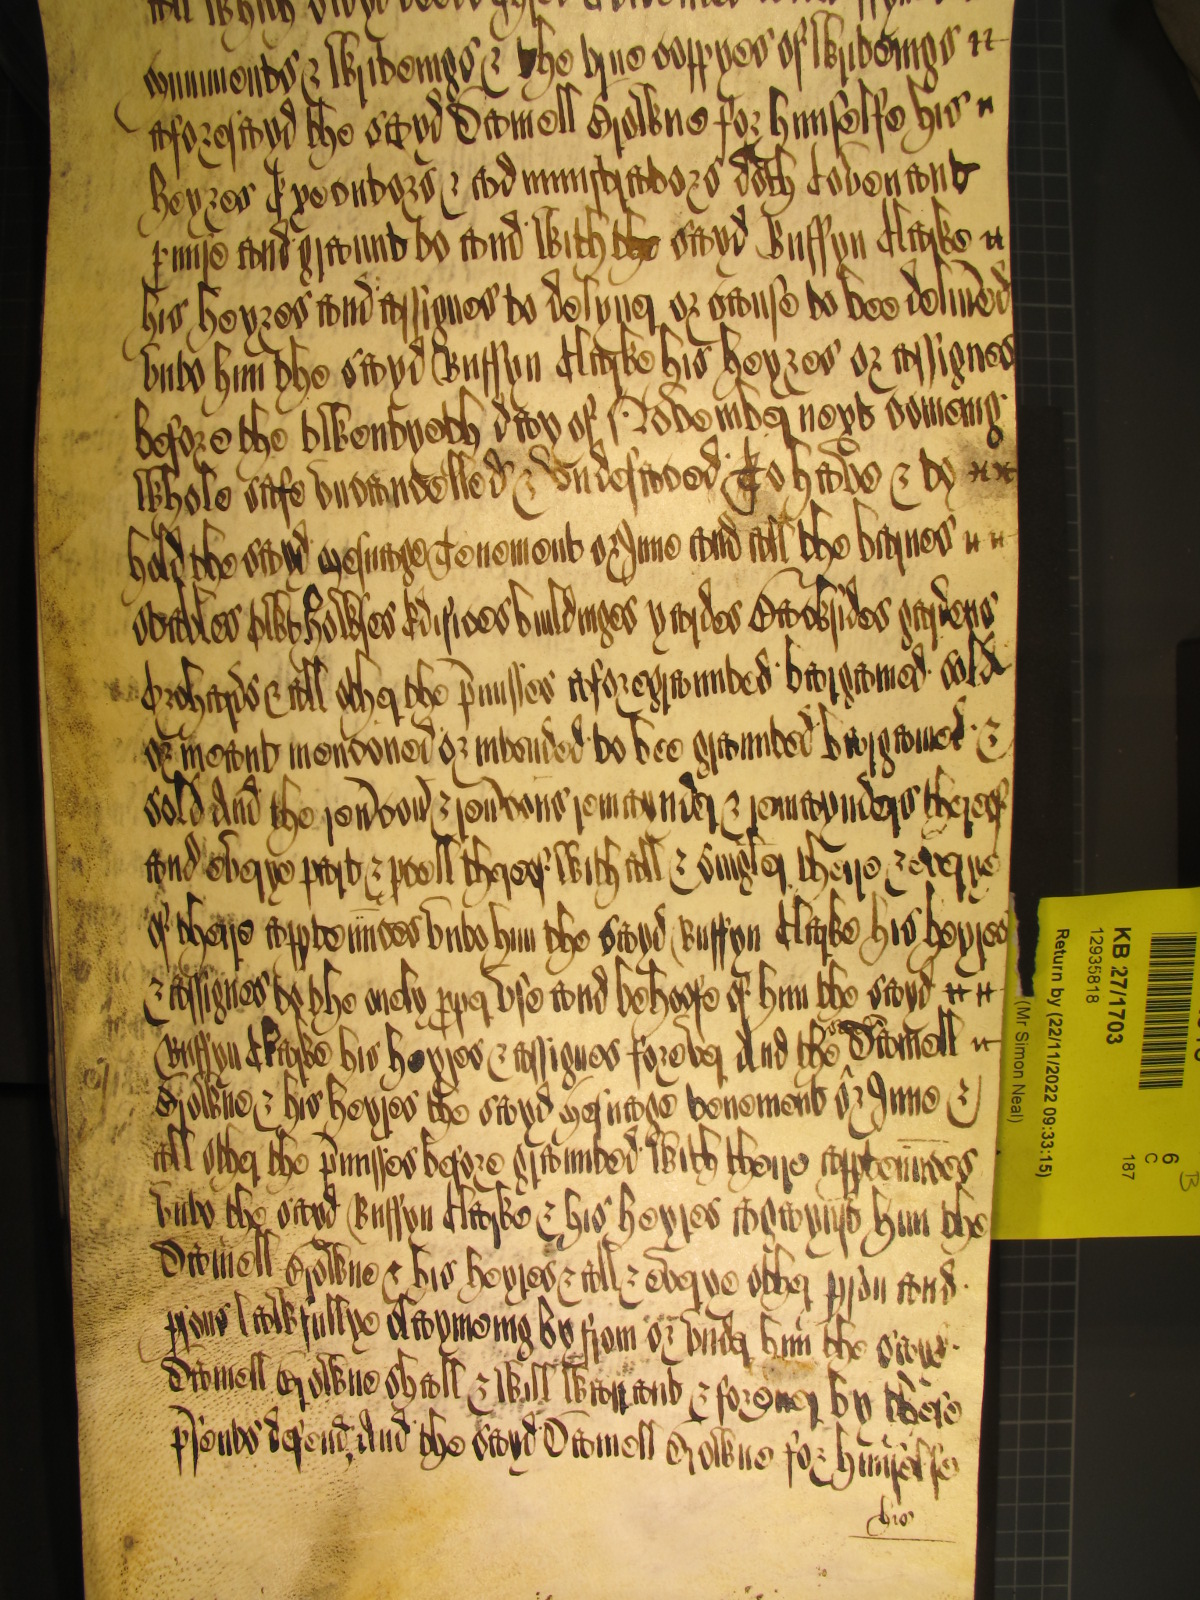 all which sayd deeds
munimentes & wrytteings & the true coppyes of wryteings
aforesayd the sayd Daniell Browne for himselfe his
heyres Executors & administrators doth Covenant
pmise and graunt to and with the sayd Ruffyn Clarke
his heyres and assignes to delyver or cause to bee delived
unto him the sayd Ruffyn Clarke his heyres or assignes
before the twentyeth day of November next comeing
whole safe uncancelled & undefaced To have & to
hold the sayd Mesuage Tenement or Inne and all the barnes
stables outhowses Edifices buildinges yardes Backsides gardens
Orchards & all other the pmisses aforegraunted bargained sold
or meant menconed or intended to bee graunted bargained &
sold And the revercon & revercons remaynder & remaynders thereof
and everye part & pcell thereof with all & singler theire & everye
of theire apptennces unto him the sayd Ruffyn Clarke his heyres
& assignes to the onely pper use and behoofe of him the sayd
Ruffyn Clarke his heyres & assignes forever And the sayd Daniell
Browne & his heyres the sayd Mesuage tenement or Inne &
all other the pmisses before graunted with theire apptennces
unto the sayd Ruffyn Clarke & his heyres agaynst him the
Daniell Browne & his heyres & all & everye other pson and
psons lawfullye claymeing by from or under him the sayd
Daniell Browne shall & will warrant & forever by these
psents defend And the sayd Daniell Browne for himselfe
his
KB 27/1703
12935818
Return by (22/11/2022 09:33:15)
(Mr Simon Neal)
6
C
187
B